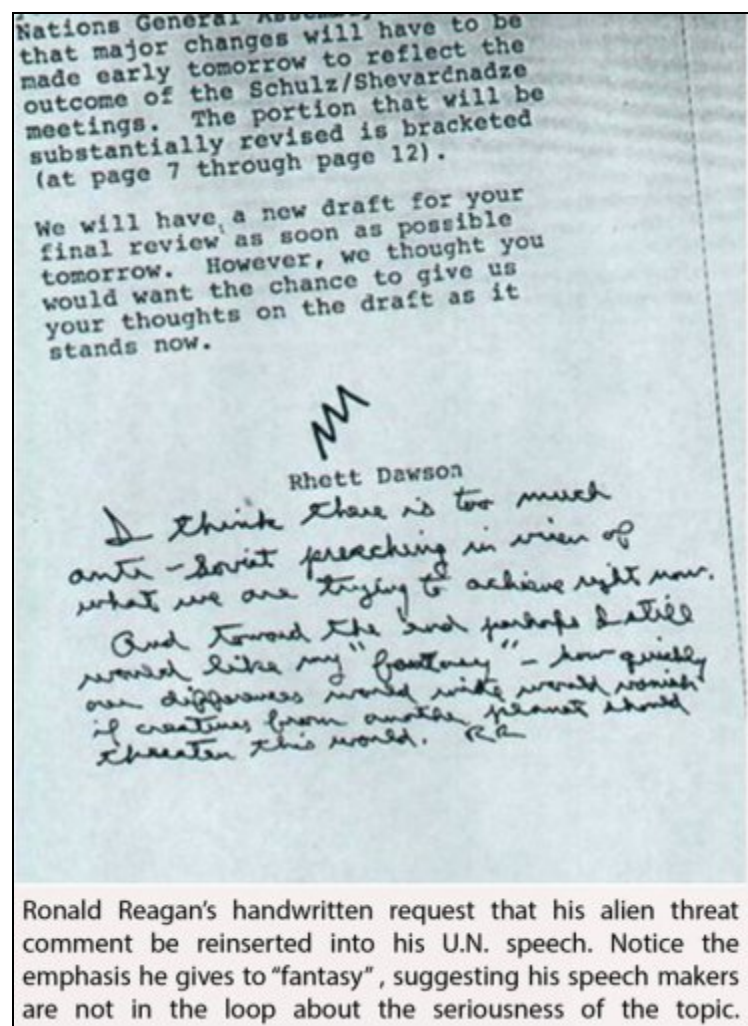 Nations General Assembly
that major changes will have to be
made early tomorrow to reflect the
outcome of the Schulz/Shevardnadze
meetings. The portion that will be
substantially revised is bracketed
(at page 7 through page 12).
We will have a new draft for your
final review as soon as possible
tomorrow. However, we thought you
would want the chance to give us
your thoughts on the draft as it
stands now.
Rhett Dawson
I think there is too much
anti-Soviet preaching in view of
what we are trying to achieve right now.
And toward the end perhaps I still
would like my "fantasy" - how quickly
our differences world wide would vanish
if creatures from another planet should
threaten this world. RR
Ronald Reagan's handwritten request that his alien threat
comment be reinserted into his U.N. speech. Notice the
emphasis he gives to "fantasy", suggesting his speech makers
are not in the loop about the seriousness of the topic.